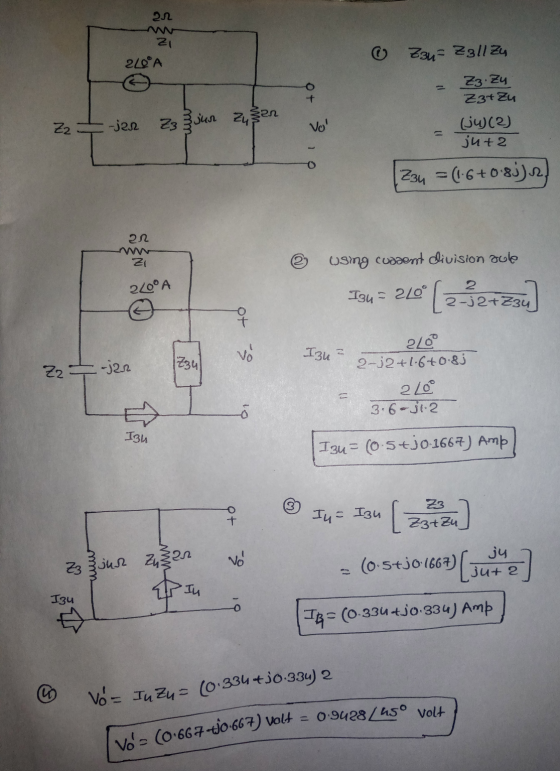 2Ω
Z1
2∠0° A
Z2 -j2Ω Z3 j4Ω Z4 2Ω
+
Vo'
-
① Z34 = Z3//Z4
= Z3·Z4 / Z3+Z4
= (j4)(2) / j4+2
Z34 = (1.6+0.8j)Ω
2Ω
Z1
2∠0° A
+
Z2 -j2Ω Z34 Vo'
-
I34
② using current division rule
I34 = 2∠0° [2 / 2-j2+Z34]
I34 = 2∠0° / 2-j2+1.6+0.8j
= 2∠0° / 3.6-j1.2
I34 = (0.5+j0.1667) Amp
+
Z3 j4Ω Z4 2Ω Vo'
I4
-
I34
③ I4 = I34 [Z3 / Z3+Z4]
= (0.5+j0.1667) [j4 / j4+2]
I4 = (0.334+j0.334) Amp
④ Vo' = I4 Z4 = (0.334+j0.334) 2
Vo' = (0.667+j0.667) Volt = 0.9428∠45° Volt